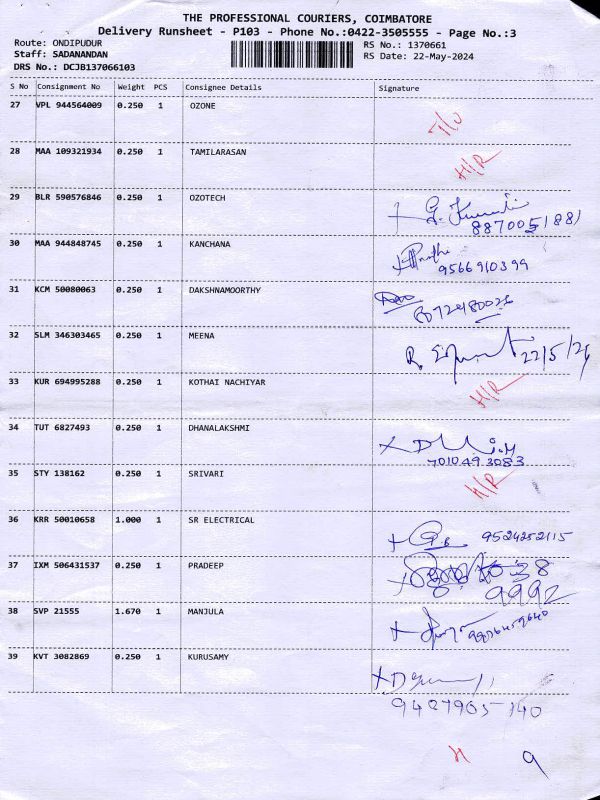 THE PROFESSIONAL COURIERS, COIMBATORE
Delivery Runsheet - P103 - Phone No.:0422-3505555 - Page No.:3
Route: ONDIPUDUR RS No.: 1370661
Staff: SADANANDAN RS Date: 22-May-2024
DRS No.: DCJB137066103
S No Consignment No Weight PCS Consignee Details Signature
27 VPL 944564009 0.250 1 OZONE
28 MAA 109321934 0.250 1 TAMILARASAN H/R
29 BLR 590576846 0.250 1 OZOTECH
30 MAA 944848745 0.250 1 KANCHANA
9566910399
31 KCM 50080063 0.250 1 DAKSHNAMOORTHY
8072480026
32 SLM 346303465 0.250 1 MEENA
22/5/24
33 KUR 694995288 0.250 1 KOTHAI NACHIYAR H/R
34 TUT 6827493 0.250 1 DHANALAKSHMI
7010493083
35 STY 138162 0.250 1 SRIVARI H/R
36 KRR 50010658 1.000 1 SR ELECTRICAL 9524252115
37 IXM 506431537 0.250 1 PRADEEP
9992
38 SVP 21555 1.670 1 MANJULA
39 KVT 3082869 0.250 1 KURUSAMY
9427905140
H 9